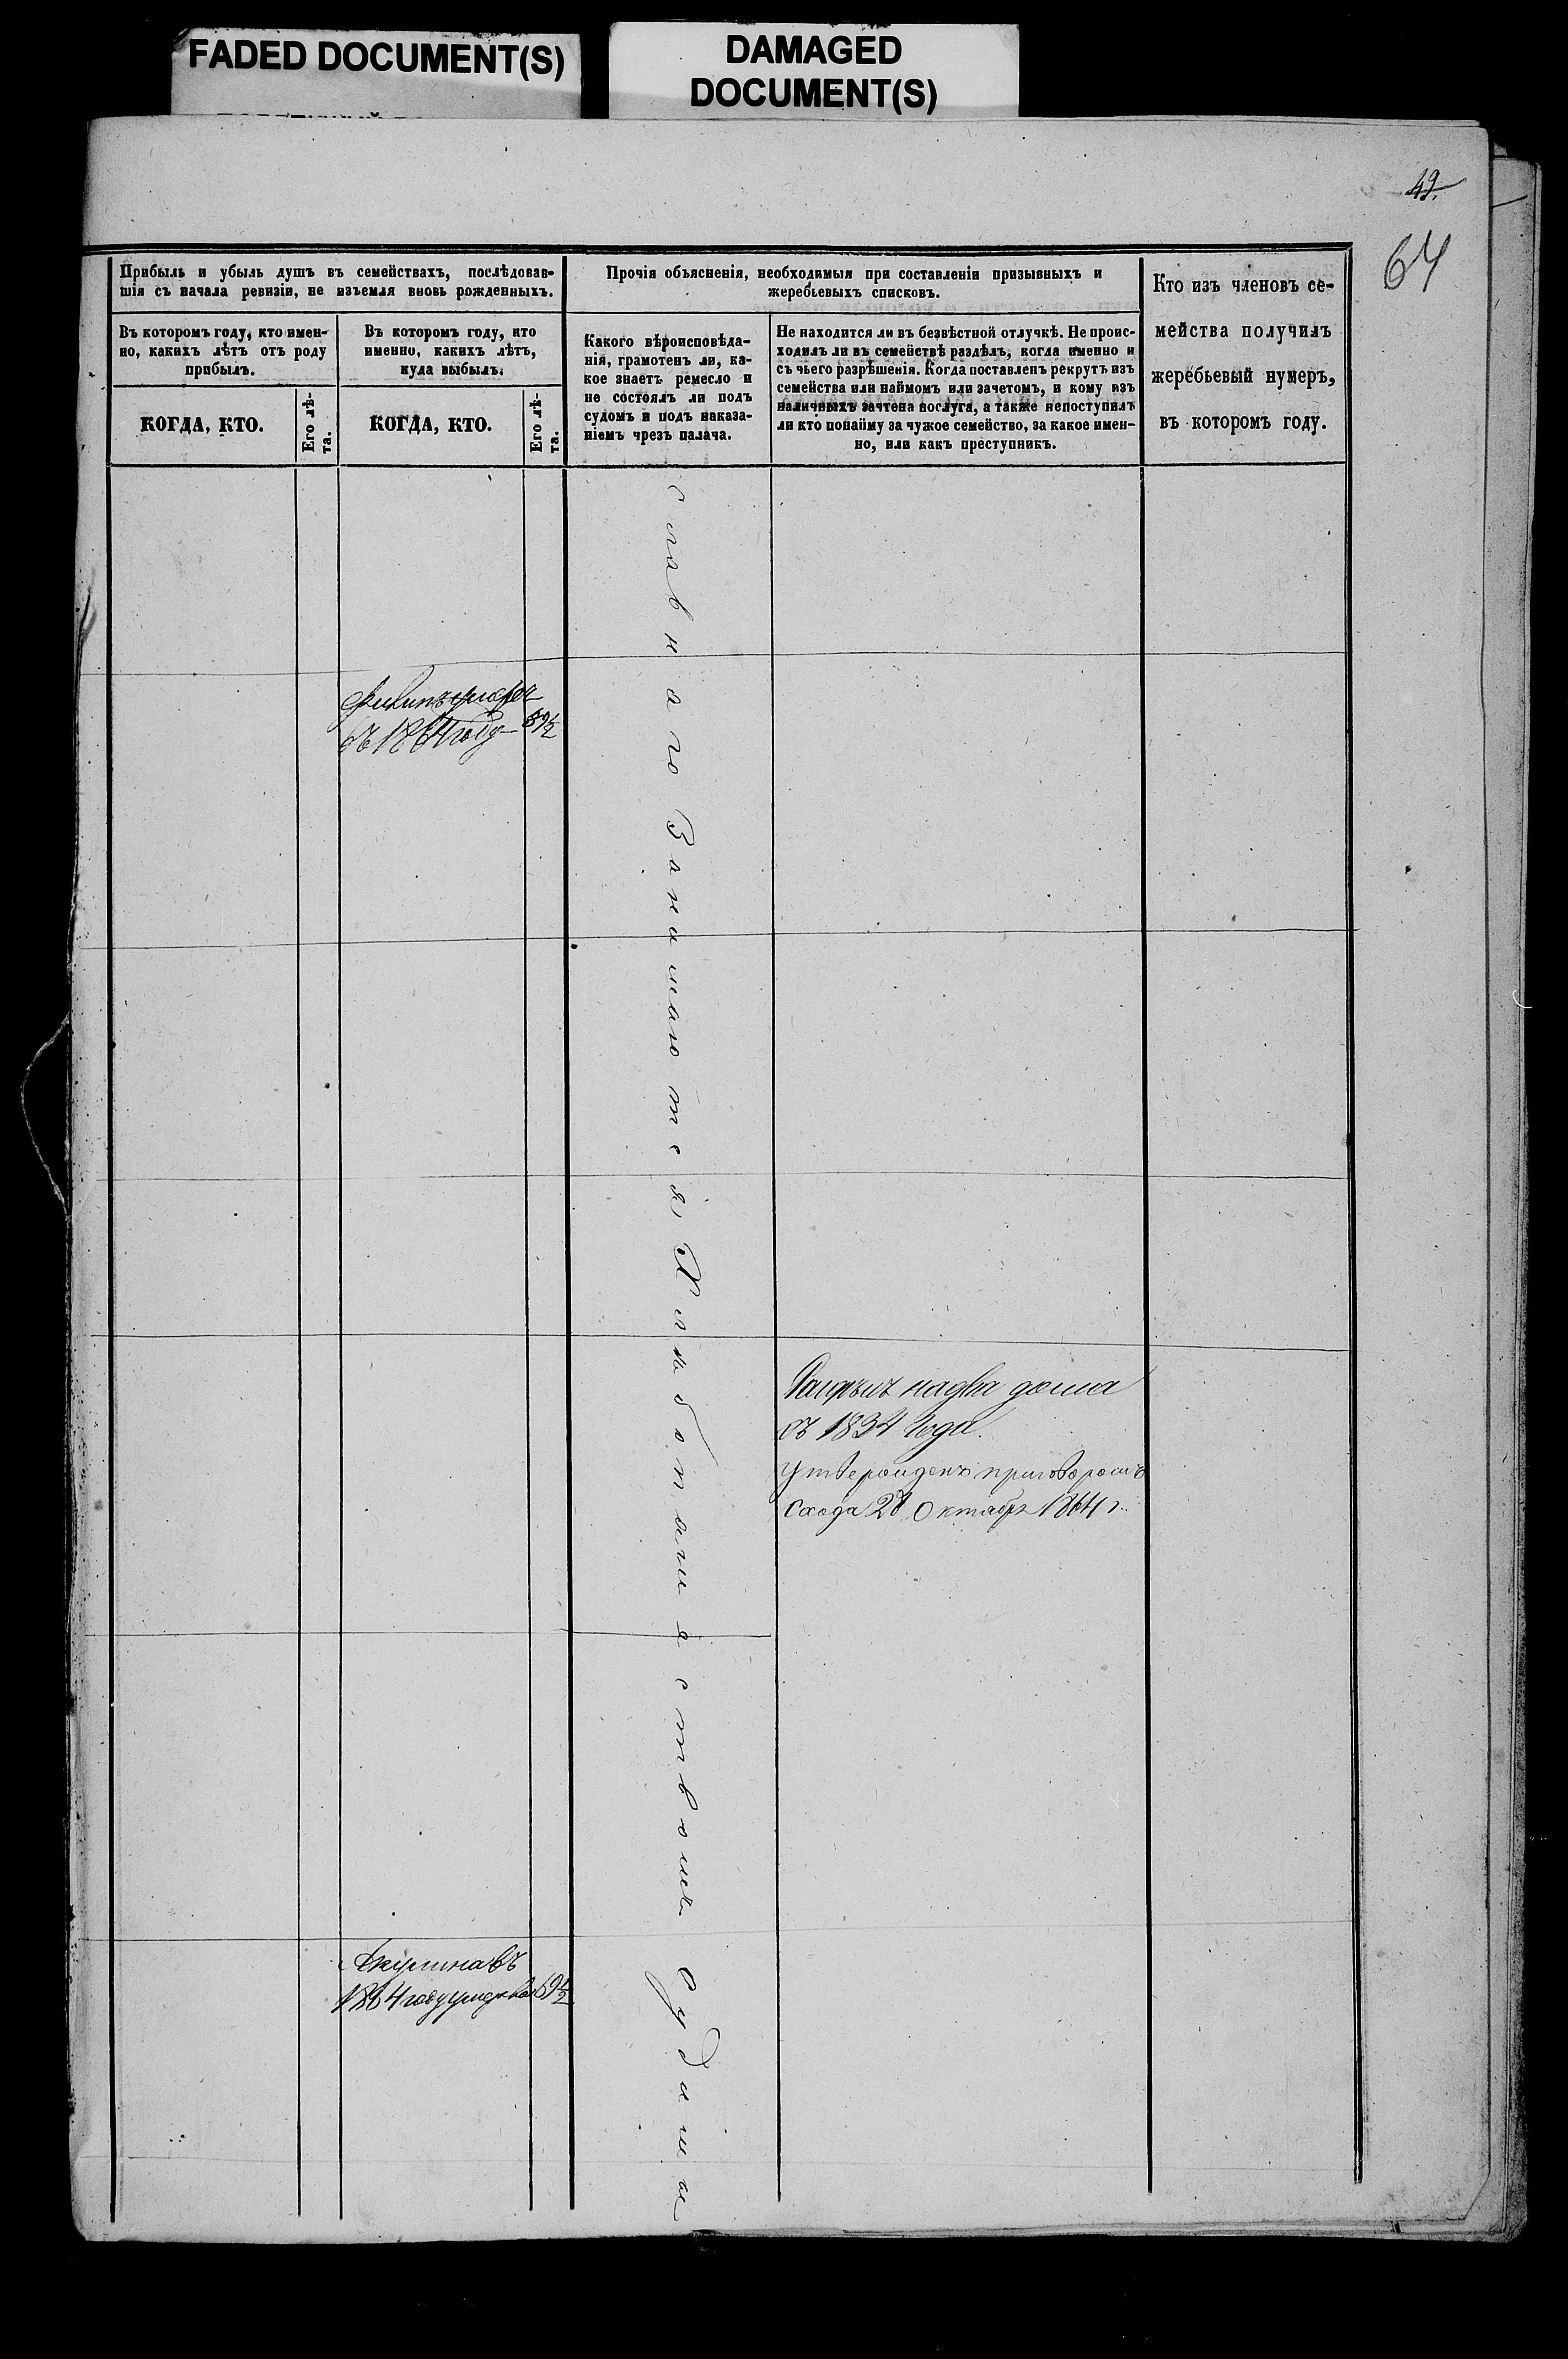 FADED DOCUMENT(S)
DAMAGED
DOCUMENT(S)
49.
64
Прибыль и убыль душъ въ семействахъ, послѣдовав-
шія съ начала ревизіи, не изъемля вновь рожденныхъ.
Прочія объясненія, необходимыя при составленіи призывныхъ и
жеребьевыхъ списковъ.
Кто изъ членовъ се-
мейства получилъ
жеребьевый нумеръ,
въ которомъ году.
Въ которомъ году, кто имен-
но, какихъ лѣтъ отъ роду
прибылъ.
Въ которомъ году, кто
именно, какихъ лѣтъ,
куда выбылъ.
Какого вѣроисповѣда-
нія, грамотенъ ли, ка-
кое знаетъ ремесло и
не состоялъ ли подъ
судомъ и подъ наказа-
ніемъ чрезъ палача.
Не находится ли въ безвѣстной отлучкѣ. Не проис-
ходилъ ли въ семействѣ раздѣлъ, когда именно и
съ чьего разрѣшенія. Когда поставленъ рекрутъ изъ
семейства или наймомъ или зачетомъ, и кому изъ
наличныхъ зачтена послуга, а также непоступилъ
ли кто понайму за чужое семейство, за какое имен-
но, или какъ преступникъ.
КОГДА, КТО.
Его лѣ-
та.
КОГДА, КТО.
Его лѣ-
та.
славнаго Занимаются Хлѣбопашествомъ Судимы
Филипъ умеръ
въ 1864 году 59½
Раздѣлъ надва дома
съ 1834 года.
Утвержденъ приговоромъ
Схода 28 Октября 1864 г.
Акулина въ
1864 году умерла 59½